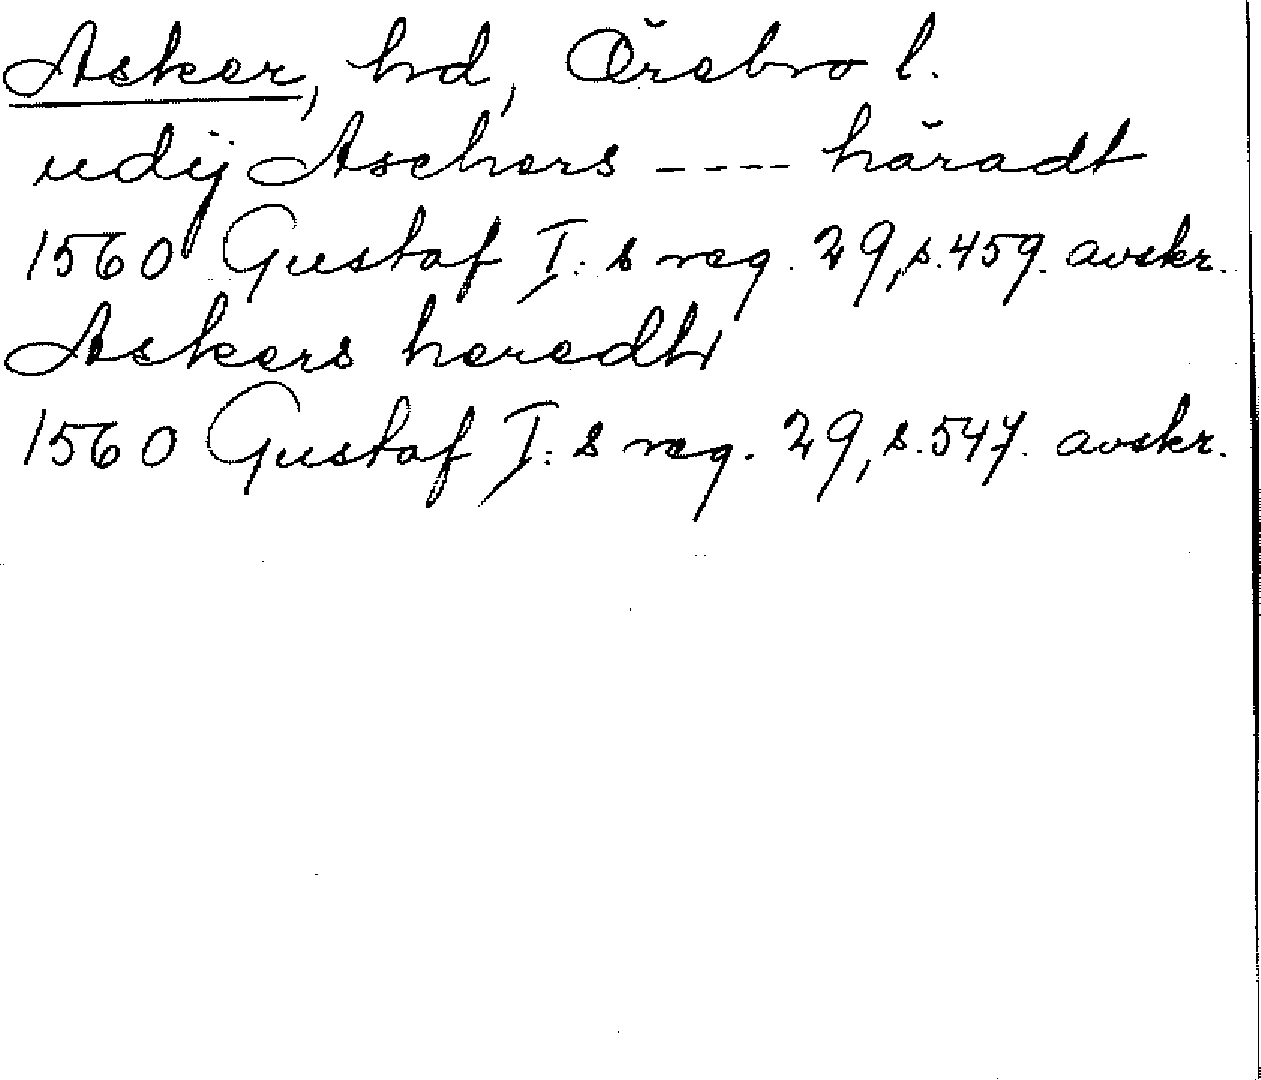 Asker, hd, Örebro l.
udij Aschers ---- häradt
1560 Gustaf I:s reg. 29, s. 459. avskr.
Askers heredh
1560 Gustaf I:s reg. 29, s. 547. avskr.